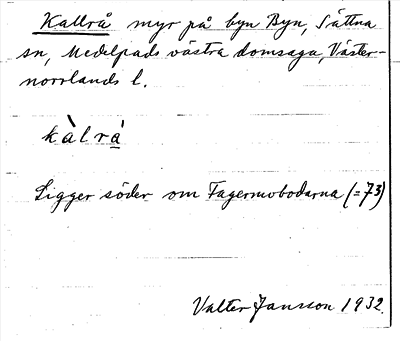 Kallrå myr på byn Byn, Sättna
sn, Medelpads västra domsaga, Väster-
norrlands l.
kàlrå̀
Ligger söder om Fagermobodarna (=73)
Valter Jansson 1932.